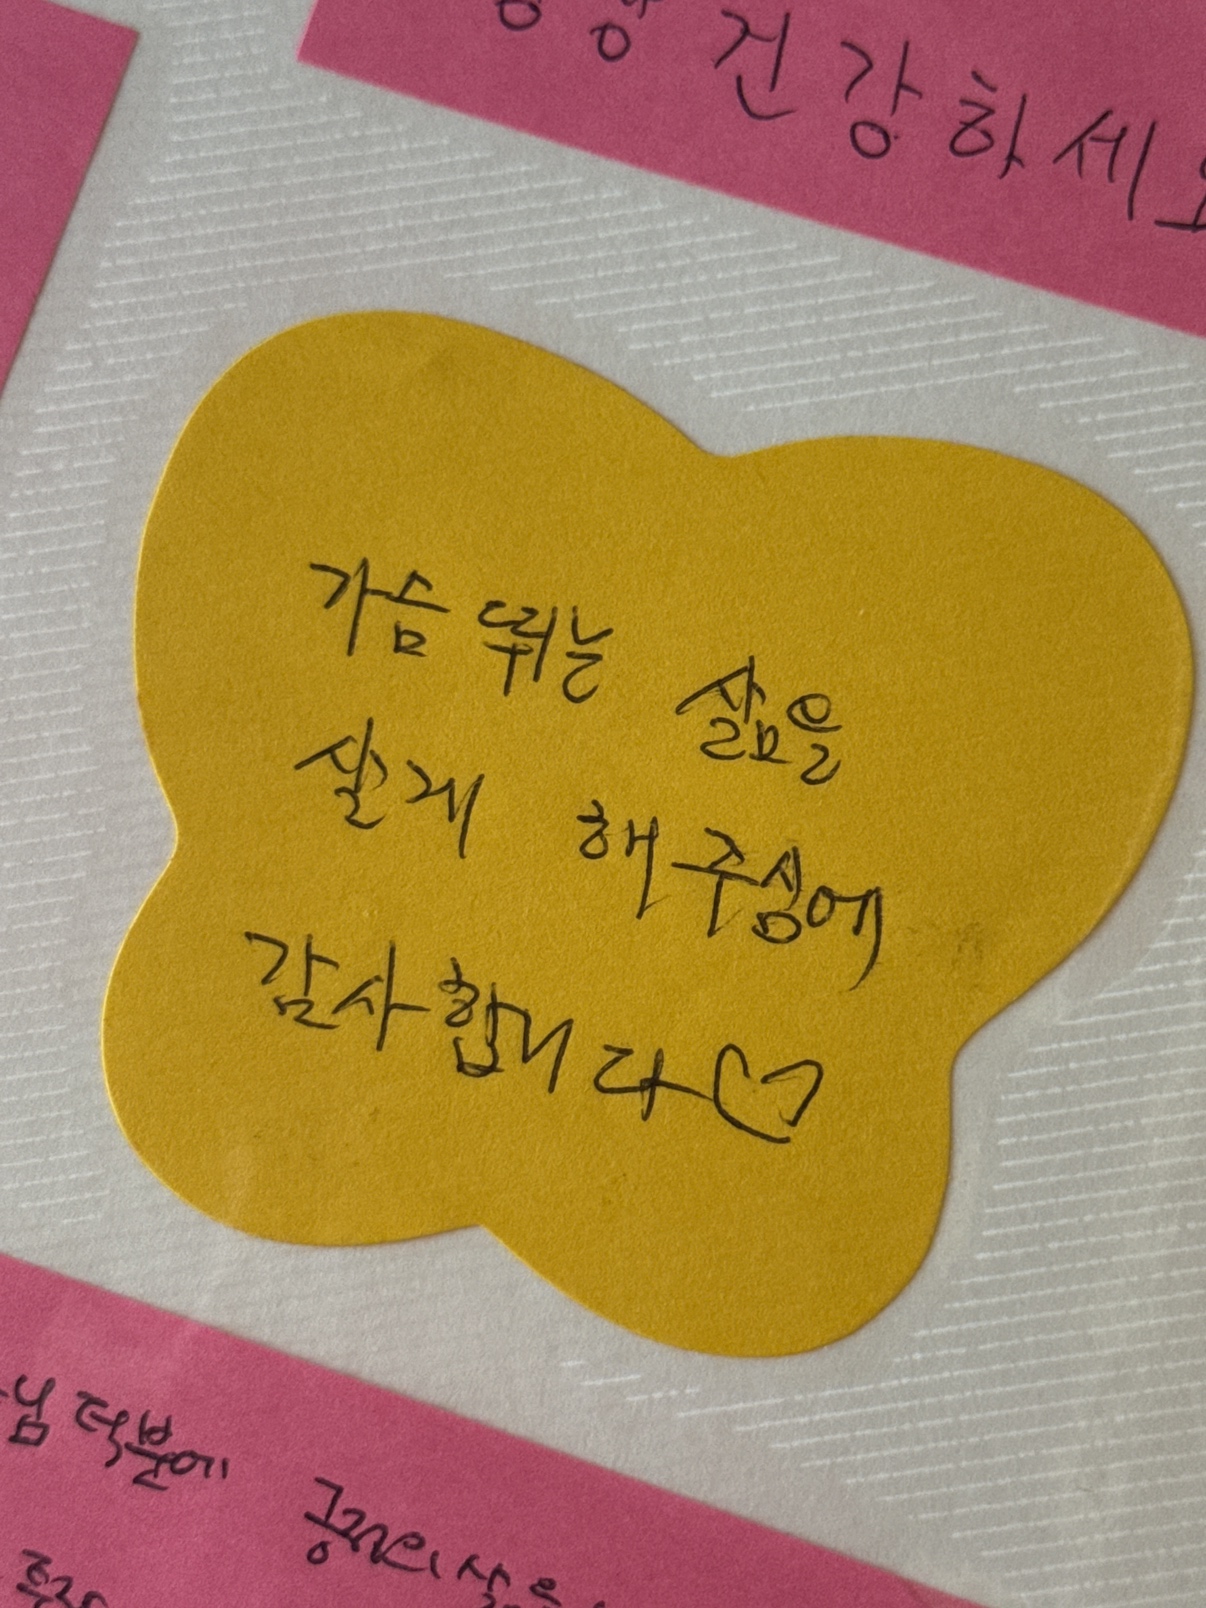 건강하세요
가슴 뛰는 삶을
살게 해 주심에
감사합니다♡
님 덕분에